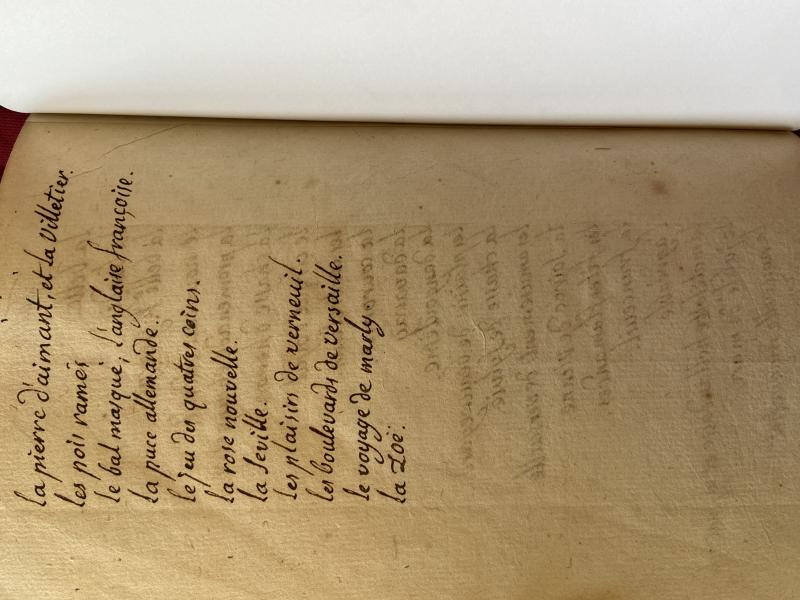 la pierre d'aimant, et la Villetier.
les pois ramés
le bal masqué, l'anglaise françoise.
la puce allemande.
le jeu des quatres coins.
la rose nouvelle.
la Seville.
les plaisirs de verneuil.
les boulevards de versaille.
le voyage de marly
la Zoë.